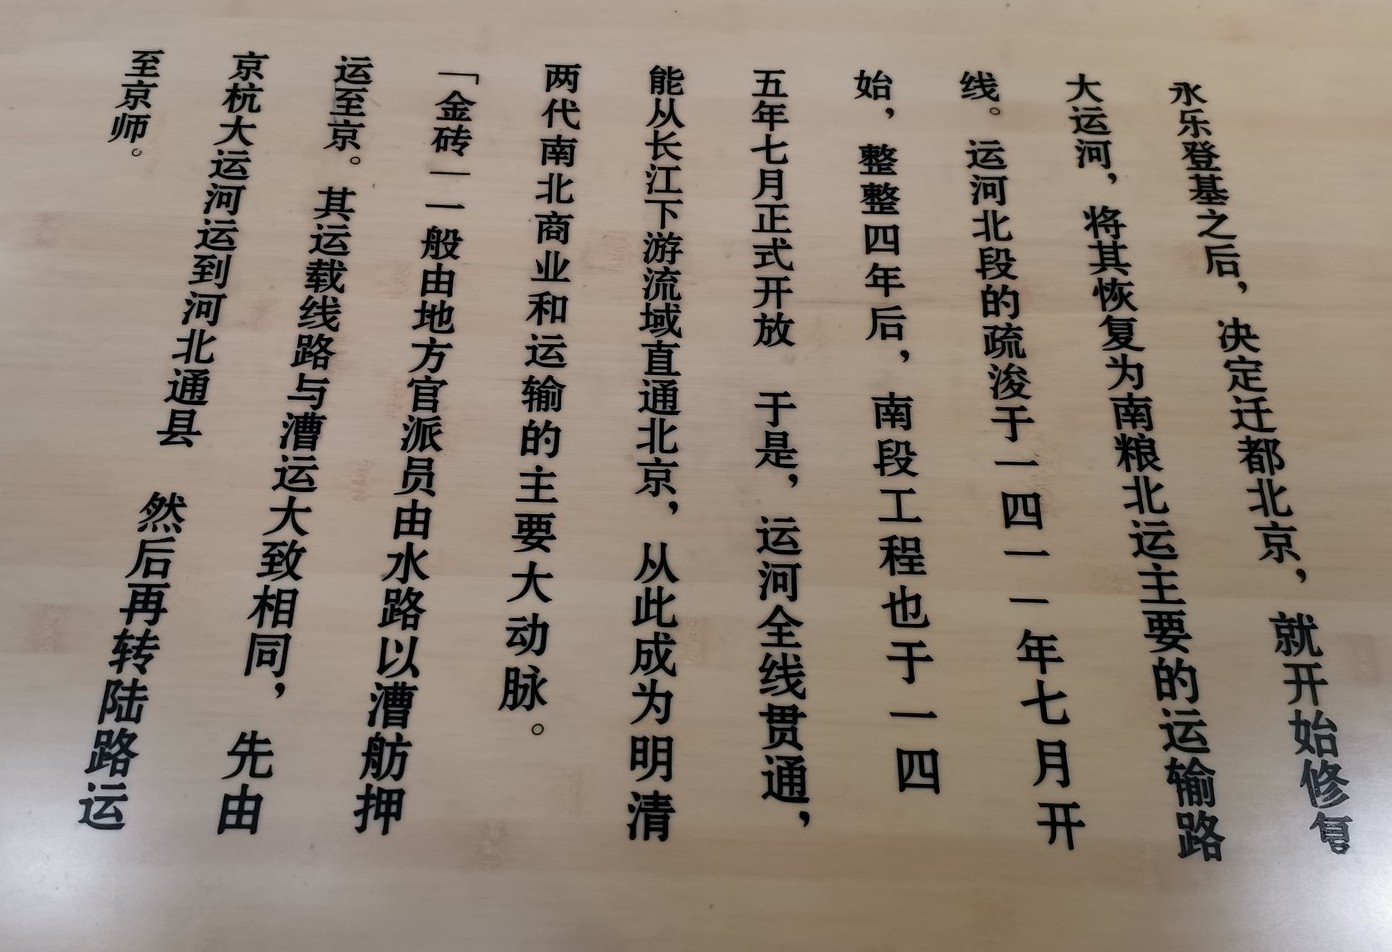 永乐登基之后，决定迁都北京，就开始修复
大运河，将其恢复为南粮北运主要的运输路
线。运河北段的疏浚于一四一一年七月开
始，整整四年后，南段工程也于一四
五年七月正式开放 于是，运河全线贯通，
能从长江下游流域直通北京，从此成为明清
两代南北商业和运输的主要大动脉。
「金砖」一般由地方官派员由水路以漕舫押
运至京。其运载线路与漕运大致相同，先由
京杭大运河运到河北通县 然后再转陆路运
至京师。